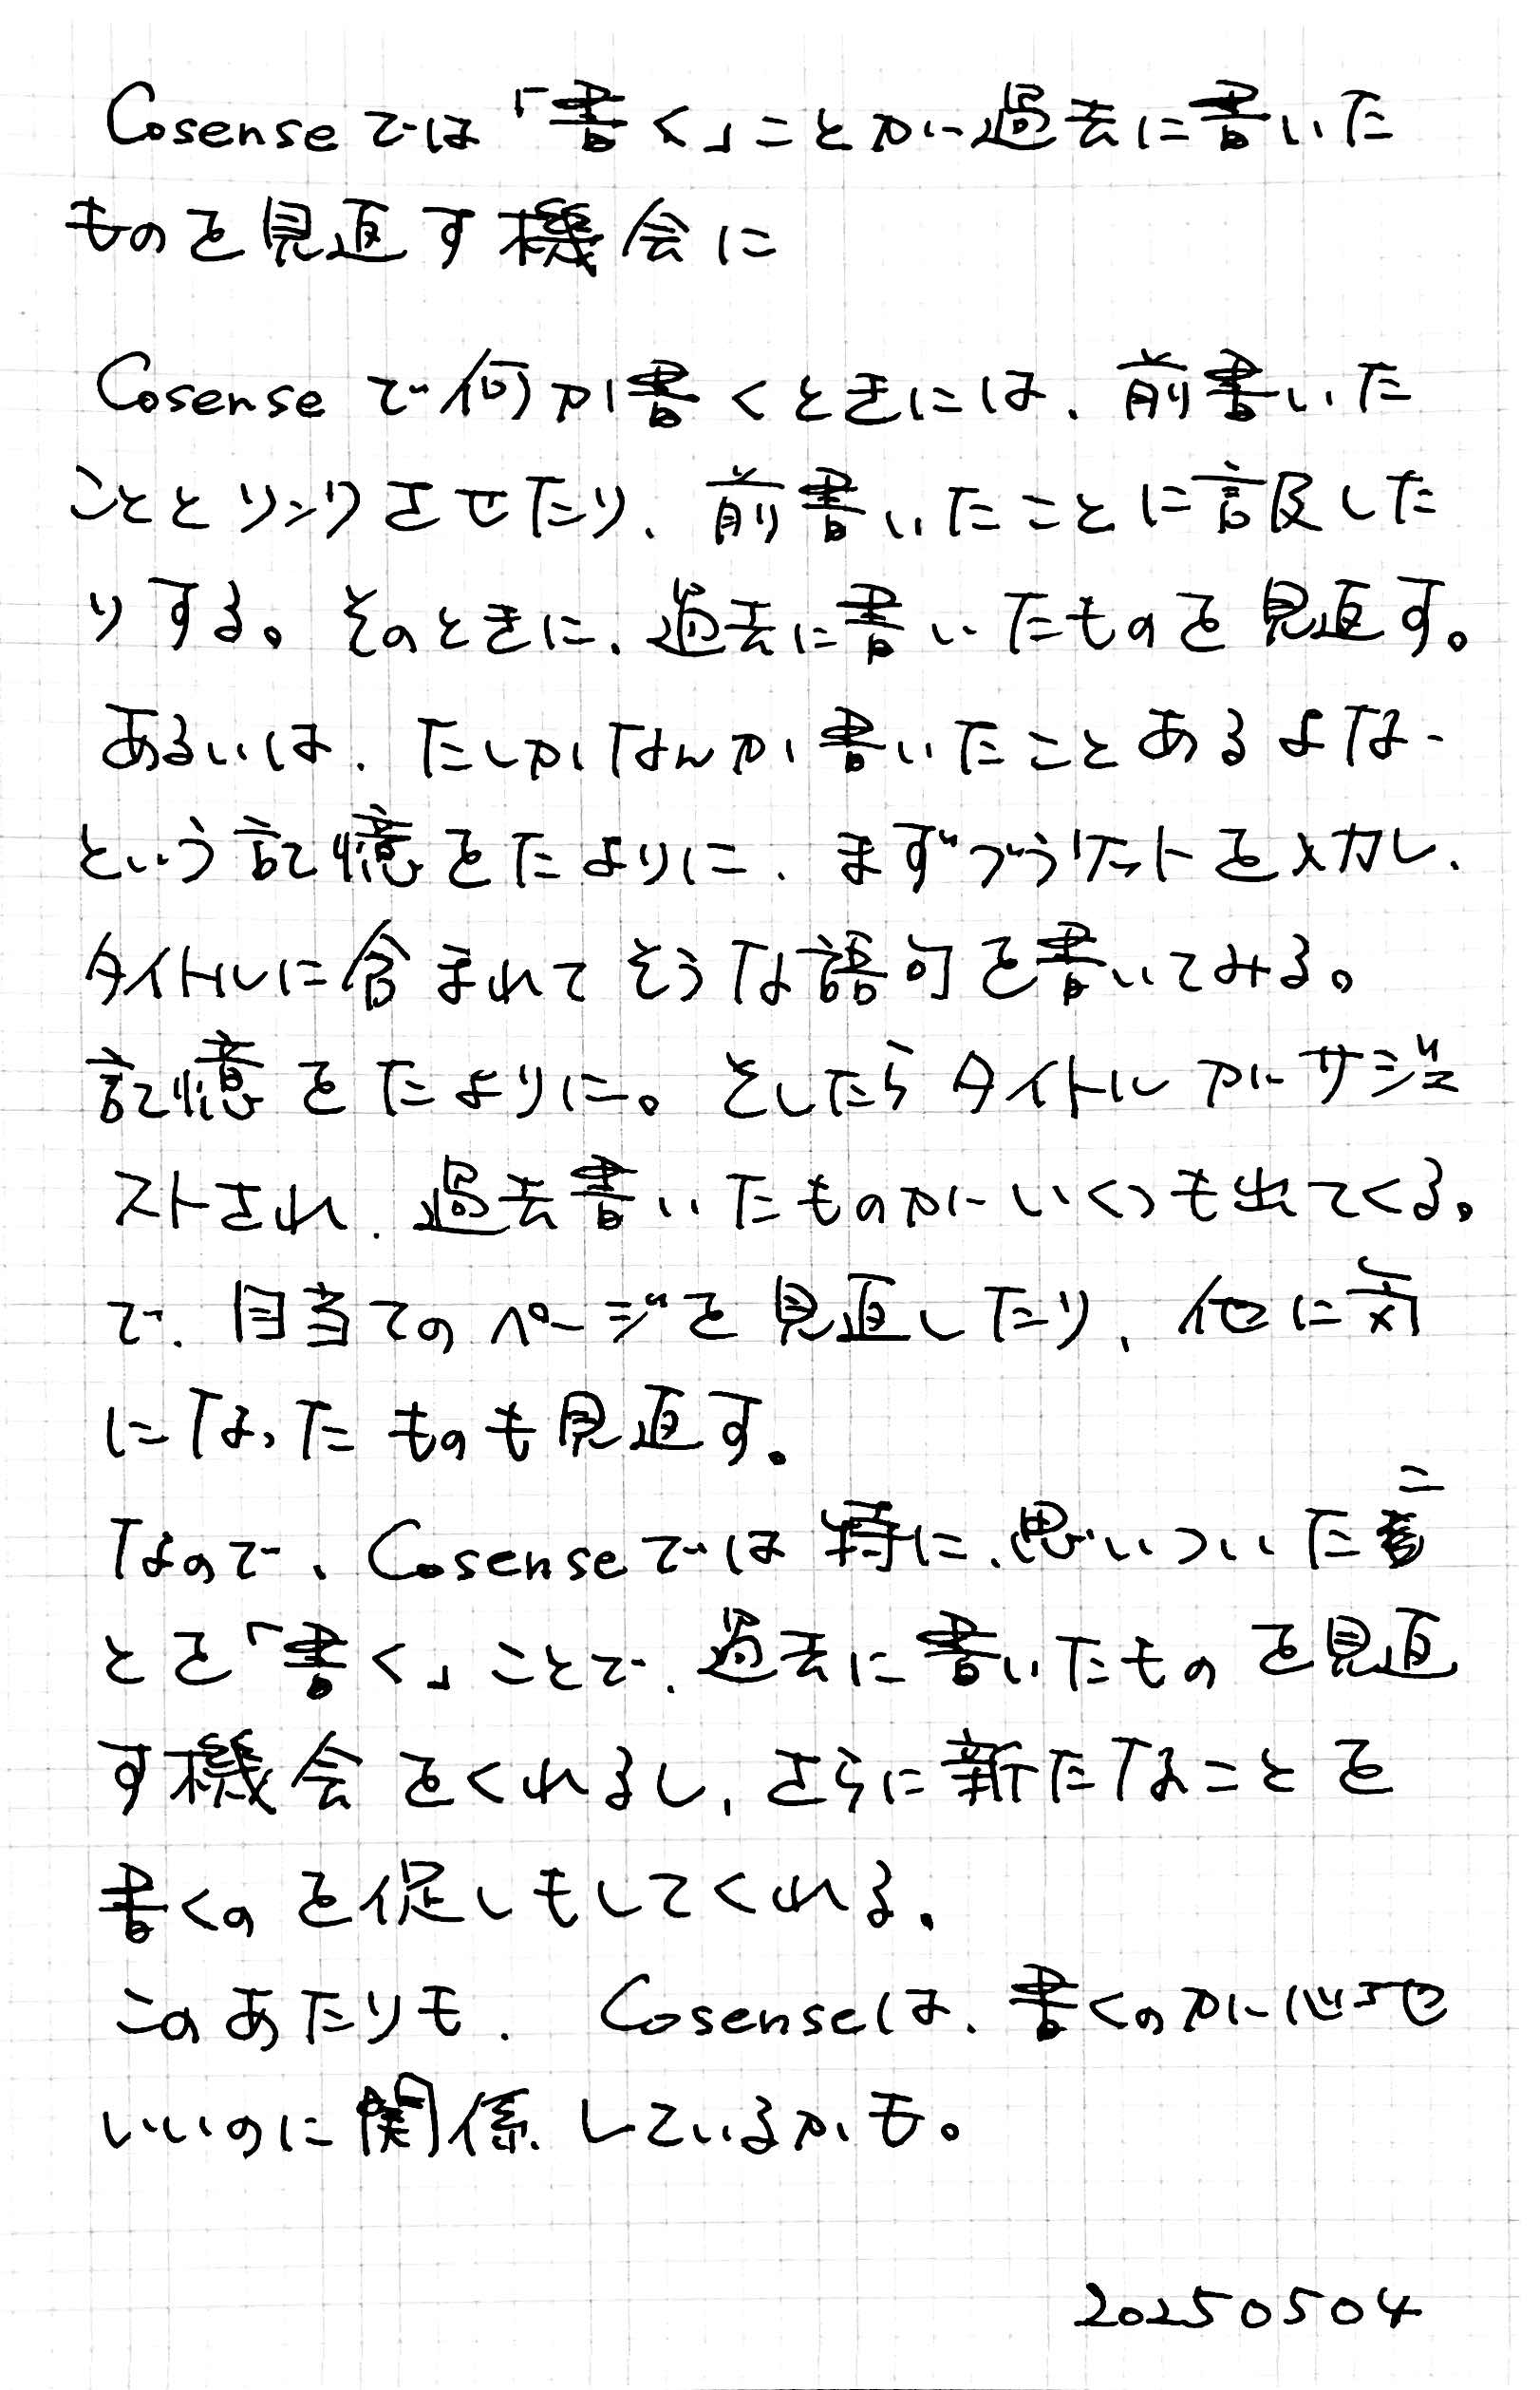 Cosenseでは「書く」ことが過去に書いた
ものを見返す機会に
Cosenseで何か書くときには、前書いた
こととリンクさせたり、前書いたことに言及した
りする。そのときに、過去に書いたものを見返す。
あるいは、たしかなんか書いたことあるよな-
という記憶をたよりに、まずブラケットを入力し、
タイトルに含まれてそうな語句を書いてみる。
記憶をたよりに。そしたらタイトルがサジェ
ストされ、過去書いたものがいくつも出てくる。
で、目当てのページを見返したり、他に気
になったものも見返す。
なので、Cosenseでは特に、思いついたこ
とを「書く」ことで、過去に書いたものを見返
す機会をくれるし、さらに新たなことを
書くのを促しもしてくれる。
このあたりも、Cosenseは、書くのが心地
いいのに関係しているかも。
20250504